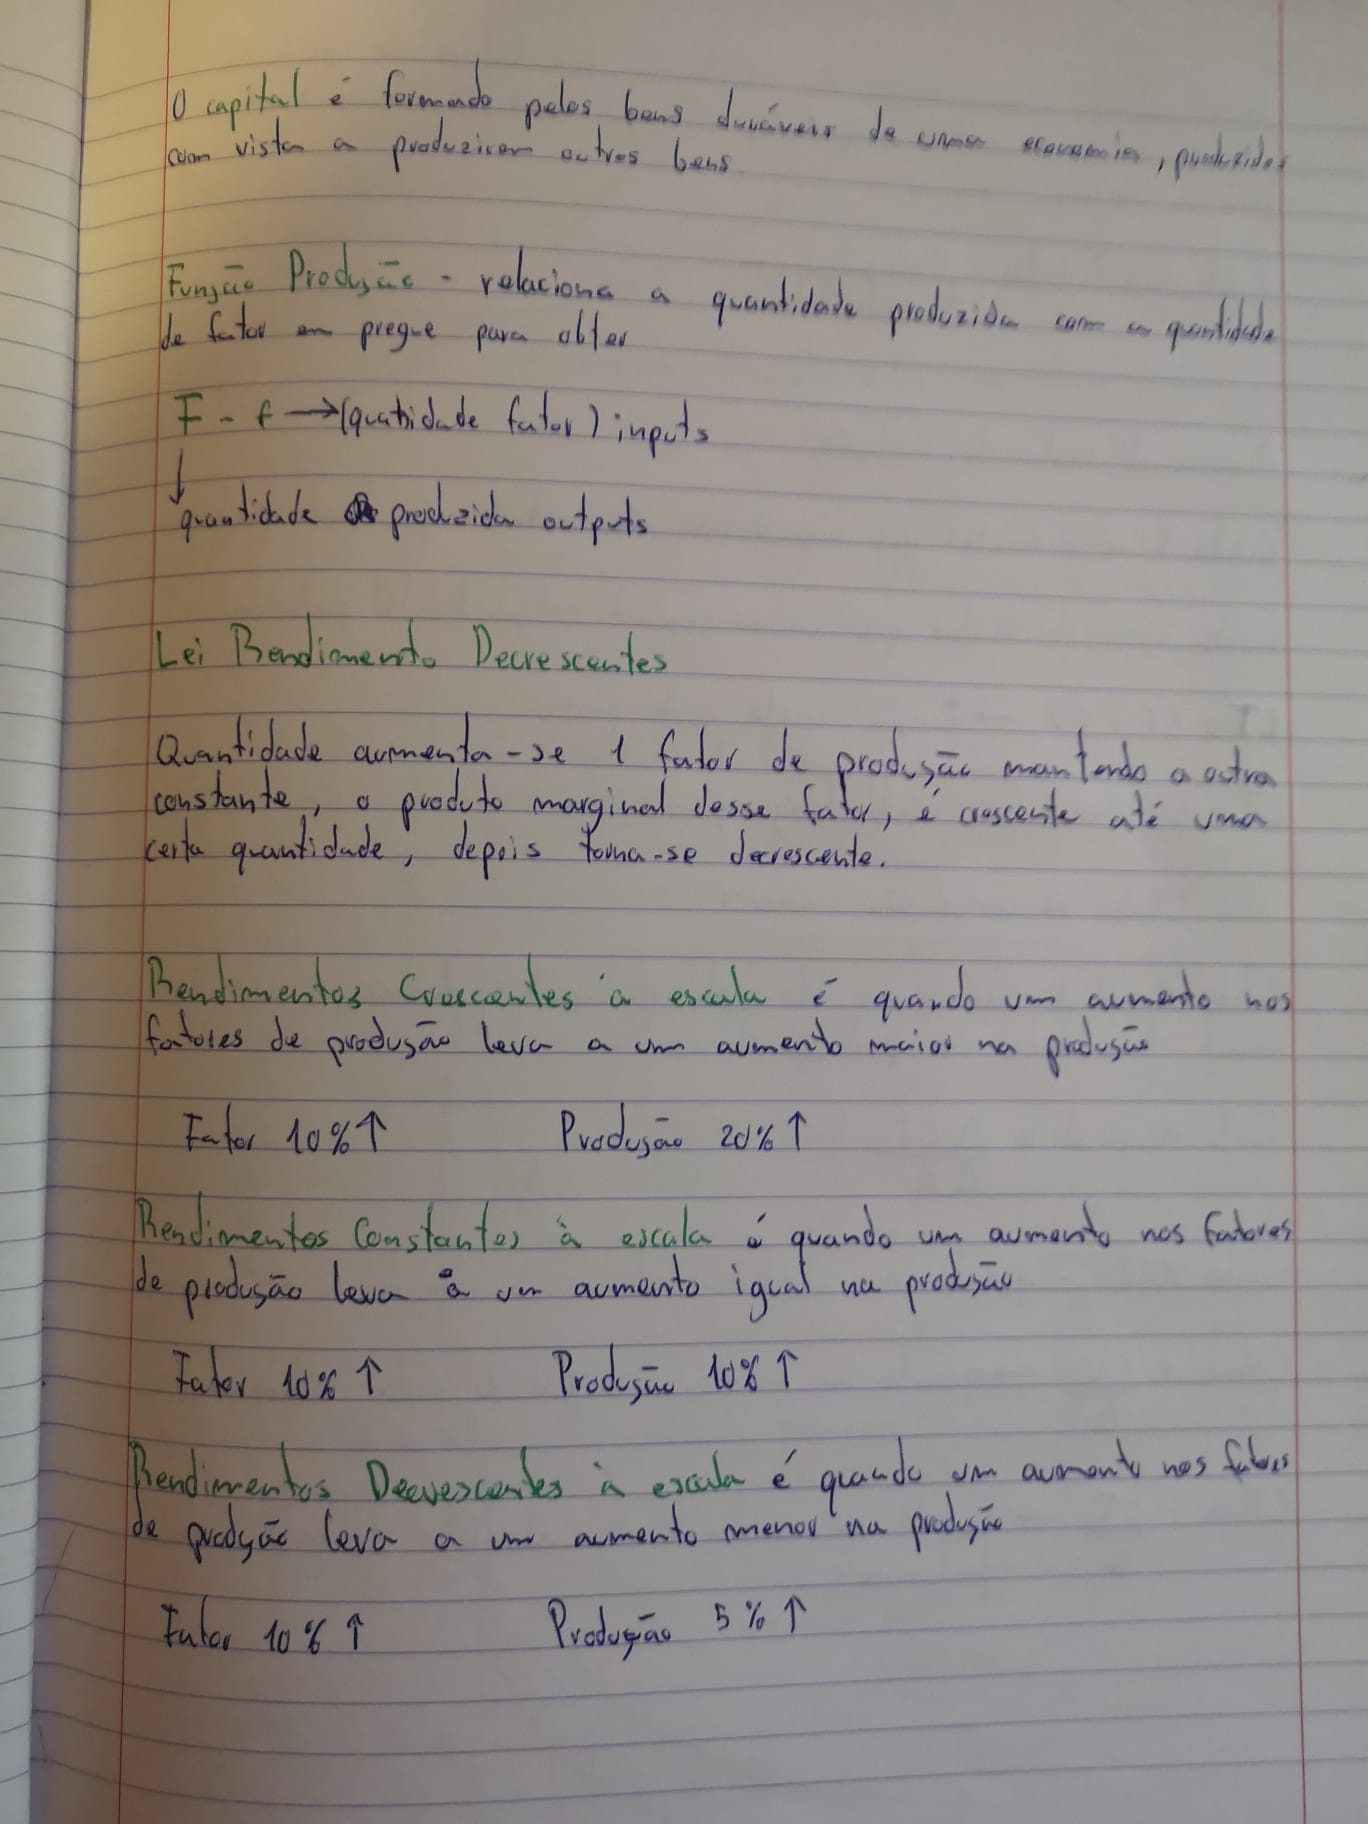 O capital é formado pelos bens duráveis de uma economia, produzidos
com vista a produzirem outros bens
Função Produção - relaciona a quantidade produzida com a quantidade
de fator em pregue para obter
F - f → (quatidade fator) inputs
↓
quantidade produzida outputs
Lei Rendimento Decrescentes
Quantidade aumenta-se 1 fator de produção mantendo a outra
constante, o produto marginal desse fator, é crescente até uma
certa quantidade, depois torna-se decrescente.
Rendimentos Crescentes à escala é quando um aumento nos
fatores de produção leva a um aumento maior na produção
Fator 10% ↑ Produção 20% ↑
Rendimentos Constantes à escala é quando um aumento nos fatores
de produção leva a um aumento igual na produção
Fator 10% ↑ Produção 10% ↑
Rendimentos Decrescentes à escala é quando um aumento nos fatores
de produção leva a um aumento menor na produção
Fator 10% ↑ Produção 5% ↑